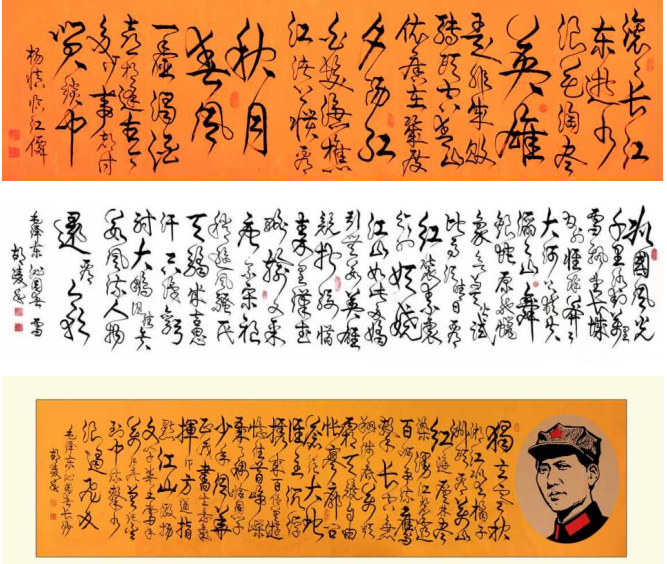 滚滚长江
东逝水
浪花淘尽
英雄
是非成败
转头空青山
依旧在几度
夕阳红
白发渔樵
江渚上惯看
秋月
春风
一壶浊酒
喜相逢古今
多少事都付
笑谈中
杨慎临江仙
北国风光
千里冰封万里
雪飘望长城
内外惟余莽莽
大河上下顿失
滔滔山舞
银蛇原驰蜡
象欲与天公试
比高须晴日看
红装素裹
分外妖娆
江山如此多娇
引无数英雄
竞折腰惜
秦皇汉武
略输文采
唐宗宋祖
稍逊风骚一代
天骄成吉思
汗只识弯弓
射大雕俱往矣
数风流人物
还看今朝
毛泽东沁园春雪
独立寒秋
湘江北去橘子
洲头看万山
红遍层林尽
染漫江碧透
百舸争流鹰
击长空鱼
翔浅底万类
霜天竞自由
怅寥廓问
苍茫大地
谁主沉浮
携来百侣曾游
忆往昔峥嵘
岁月稠恰同学
少年风华
正茂书生意气
挥斥方遒指
点江山激扬
文字粪土当年
万户侯曾记否
到中流击水
浪遏飞舟
毛泽东沁园春长沙